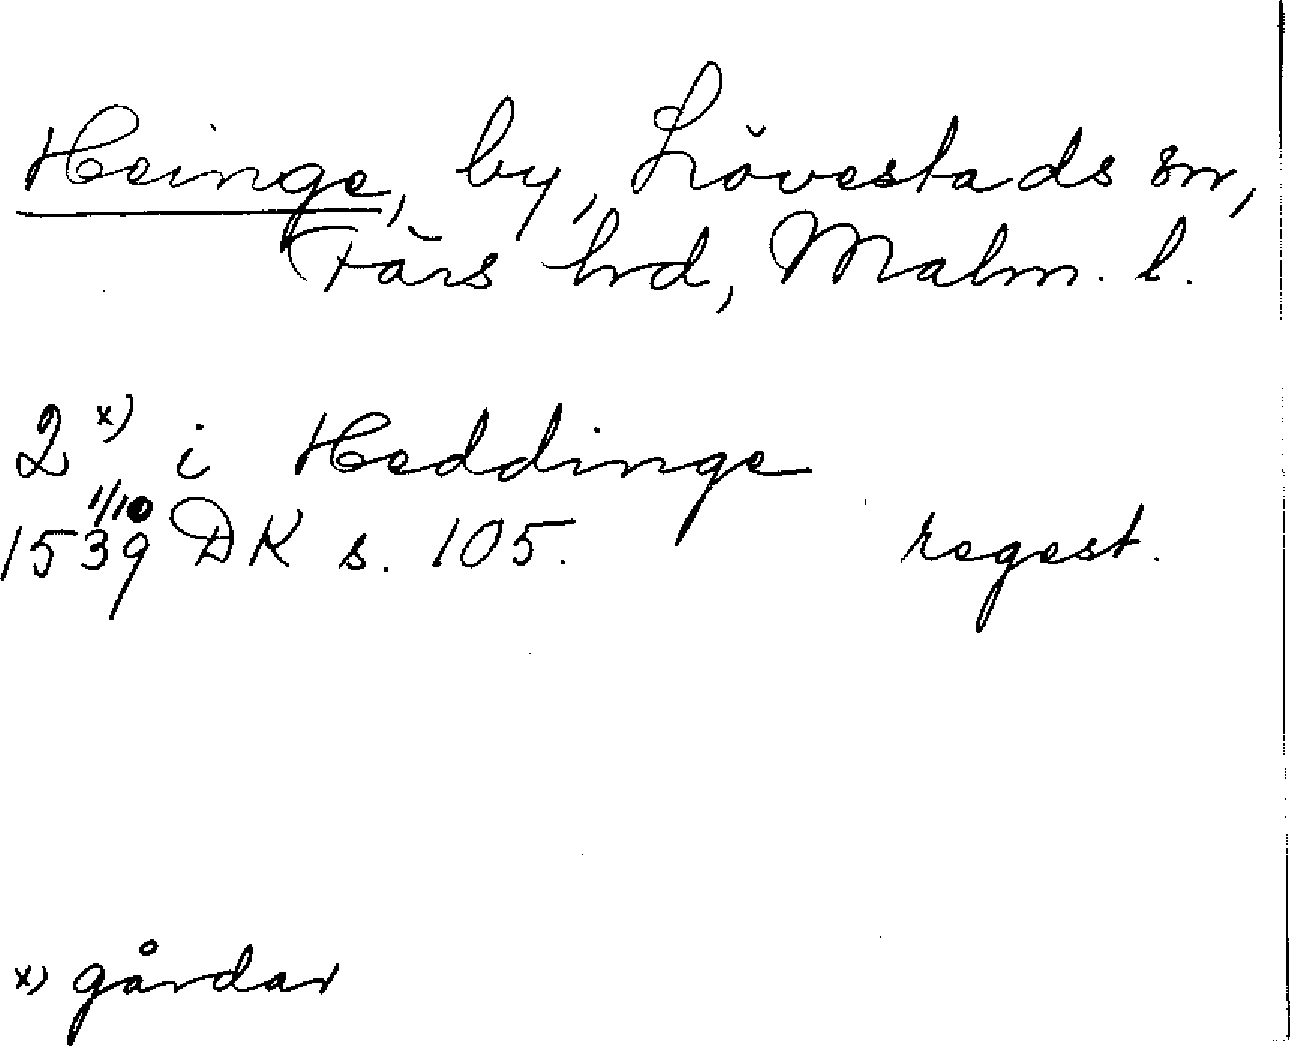 Heinge, by, Lövestads sn,
Färs hd, Malm. l.
2 x) i Heddinge
1/10
1539 DK s. 105. regest.
x) gårdar